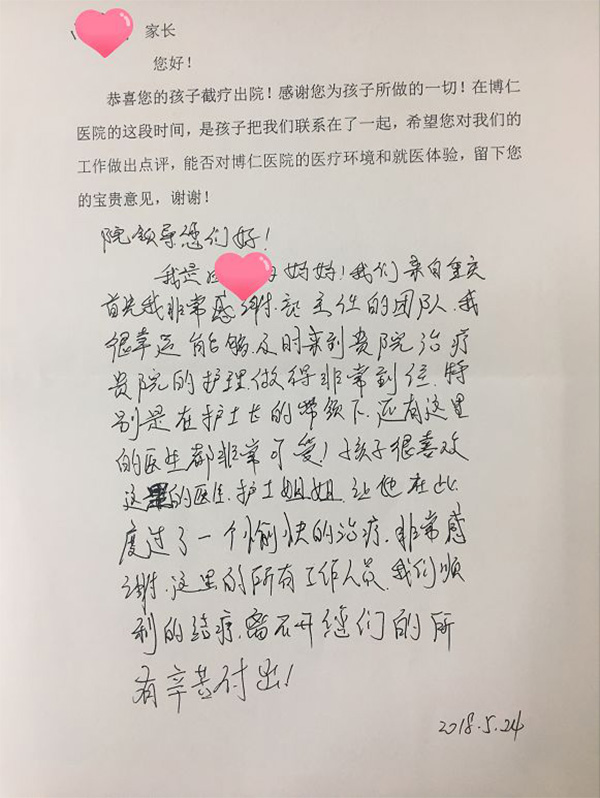 家长
您好！
恭喜您的孩子截疗出院！感谢您为孩子所做的一切！在博仁
医院的这段时间，是孩子把我们联系在了一起，希望您对我们的
工作做出点评，能否对博仁医院的医疗环境和就医体验，留下您
的宝贵意见，谢谢！
院领导您们好！
我是 妈妈！我们来自重庆
首先我非常感谢 主任的团队，我
很幸运能够及时来到贵院治疗
贵院的护理做得非常到位，特
别是在护士长的带领下，还有这里
的医生都非常可爱！孩子很喜欢
这里的医生、护士姐姐，让他在此
度过了一个愉快的治疗，非常感
谢，这里的所有工作人员，我们顺
利的结疗，离不开您们的所
有辛苦付出！
2018.5.24